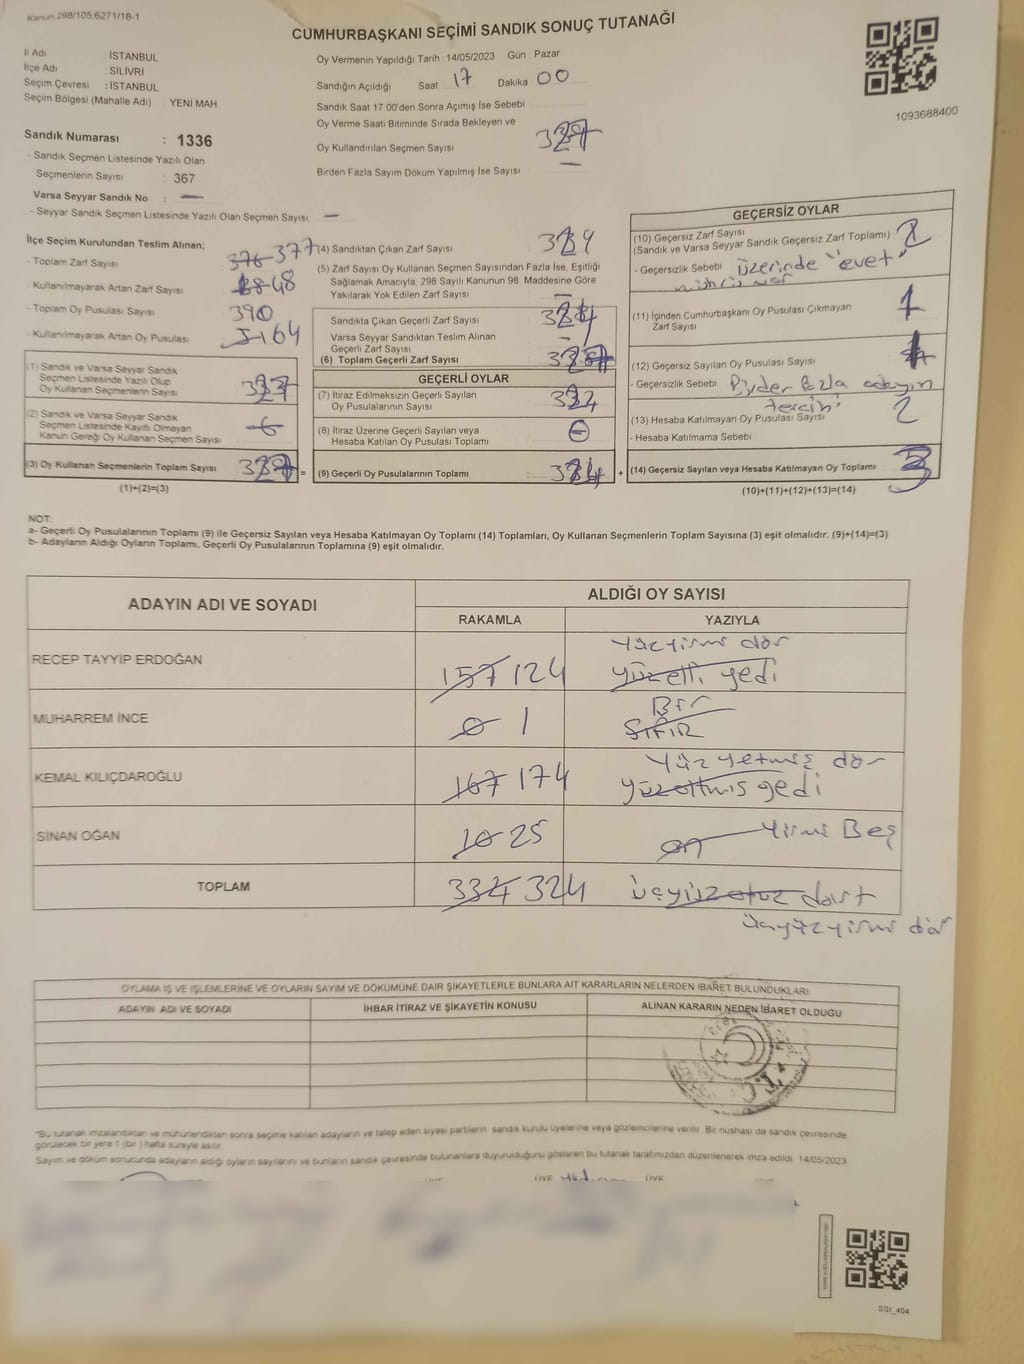 Kanun 298/105,6271/18-1
CUMHURBAŞKANI SEÇİMİ SANDIK SONUÇ TUTANAĞI
1093688400
İl Adı : İSTANBUL
İlçe Adı : SİLİVRİ
Seçim Çevresi : İSTANBUL
Seçim Bölgesi (Mahalle Adı) : YENİ MAH
Sandık Numarası : 1336
- Sandık Seçmen Listesinde Yazılı Olan
Seçmenlerin Sayısı : 367
Varsa Seyyar Sandık No : —
- Seyyar Sandık Seçmen Listesinde Yazılı Olan Seçmen Sayısı : —
Oy Vermenin Yapıldığı Tarih : 14/05/2023 Gün : Pazar
Sandığın Açıldığı Saat 17 Dakika 00
Sandık Saat 17.00'den Sonra Açımış İse Sebebi
Oy Verme Saati Bitiminde Sırada Bekleyen ve
Oy Kullandırılan Seçmen Sayısı
Birden Fazla Sayım Döküm Yapılmış İse Sayısı : —
İlçe Seçim Kurulundan Teslim Alınan;
- Toplam Zarf Sayısı : 376 377
- Kullanılmayarak Artan Zarf Sayısı : 48
- Toplam Oy Pusulası Sayısı : 390
- Kullanılmayarak Artan Oy Pusulası : 64
(1) Sandık ve Varsa Seyyar Sandık
Seçmen Listesinde Yazılı Olup
Oy Kullanan Seçmenlerin Sayısı
(2) Sandık ve Varsa Seyyar Sandık
Seçmen Listesinde Kayıtlı Olmayan
Kanun Gereği Oy Kullanan Seçmen Sayısı
(3) Oy Kullanan Seçmenlerin Toplam Sayısı
=
(1)+(2)=(3)
(4) Sandıktan Çıkan Zarf Sayısı
(5) Zarf Sayısı Oy Kullanan Seçmen Sayısından Fazla İse, Eşitliği
Sağlamak Amacıyla, 298 Sayılı Kanunun 98. Maddesine Göre
Yakılarak Yok Edilen Zarf Sayısı : —
Sandıkta Çıkan Geçerli Zarf Sayısı
Varsa Seyyar Sandıktan Teslim Alınan
Geçerli Zarf Sayısı : —
(6) Toplam Geçerli Zarf Sayısı
GEÇERLİ OYLAR
(7) İtiraz Edilmeksizin Geçerli Sayılan
Oy Pusulalarının Sayısı
(8) İtiraz Üzerine Geçerli Sayılan veya
Hesaba Katılan Oy Pusulası Toplamı
(9) Geçerli Oy Pusulalarının Toplamı
+
GEÇERSİZ OYLAR
(10) Geçersiz Zarf Sayısı
(Sandık ve Varsa Seyyar Sandık Geçersiz Zarf Toplamı)
- Geçersizlik Sebebi : üzerinde "evet"
(11) İçinden Cumhurbaşkanı Oy Pusulası Çıkmayan
Zarf Sayısı : 1
(12) Geçersiz Sayılan Oy Pusulası Sayısı
- Geçersizlik Sebebi : Birden fazla adayın
tercih
(13) Hesaba Katılmayan Oy Pusulası Sayısı : 2
- Hesaba Katılmama Sebebi
(14) Geçersiz Sayılan veya Hesaba Katılmayan Oy Toplamı
(10)+(11)+(12)+(13)=(14)
NOT:
a- Geçerli Oy Pusulalarının Toplamı (9) ile Geçersiz Sayılan veya Hesaba Katılmayan Oy Toplamı (14) Toplamları, Oy Kullanan Seçmenlerin Toplam Sayısına (3) eşit olmalıdır. (9)+(14)=(3)
b- Adayların Aldığı Oyların Toplamı, Geçerli Oy Pusulalarının Toplamına (9) eşit olmalıdır.
ADAYIN ADI VE SOYADI
ALDIĞI OY SAYISI
RAKAMLA
YAZIYLA
RECEP TAYYİP ERDOĞAN 157 124 yüzyirmi dör
yüzelli yedi
MUHARREM İNCE 0 1 Bir
SIFIR
KEMAL KILIÇDAROĞLU 167 174 yüzyetmiş dör
yüzaltmış yedi
SİNAN OĞAN 10 25 on Yirmi Beş
TOPLAM 334 324 üçyüzotuz dört
üçyüzyirmi dör
OYLAMA İŞ VE İŞLEMLERİNE VE OYLARIN SAYIM VE DÖKÜMÜNE DAİR ŞİKAYETLERLE BUNLARA AİT KARARLARIN NELERDEN İBARET BULUNDUKLARI
ADAYIN ADI VE SOYADI
İHBAR İTİRAZ VE ŞİKAYETİN KONUSU
ALINAN KARARIN NEDEN İBARET OLDUĞU
T.C.
*Bu tutanak imzalandıktan ve mühürlendikten sonra seçime katılan adayların ve talep eden siyasi partilerin sandık kurulu üyelerine veya gözlemcilerine verilir. Bir nüshası da sandık çevresinde
görülecek bir yere 1 (bir) hafta süreyle asılır.
Sayım ve döküm sonucunda adayların aldığı oyların sayılarını ve bunların sandık çevresinde bulunanlara duyurulduğunu gösteren bu tutanak tarafımızdan düzenlenerek imza edildi. 14/05/2023
SSI_404